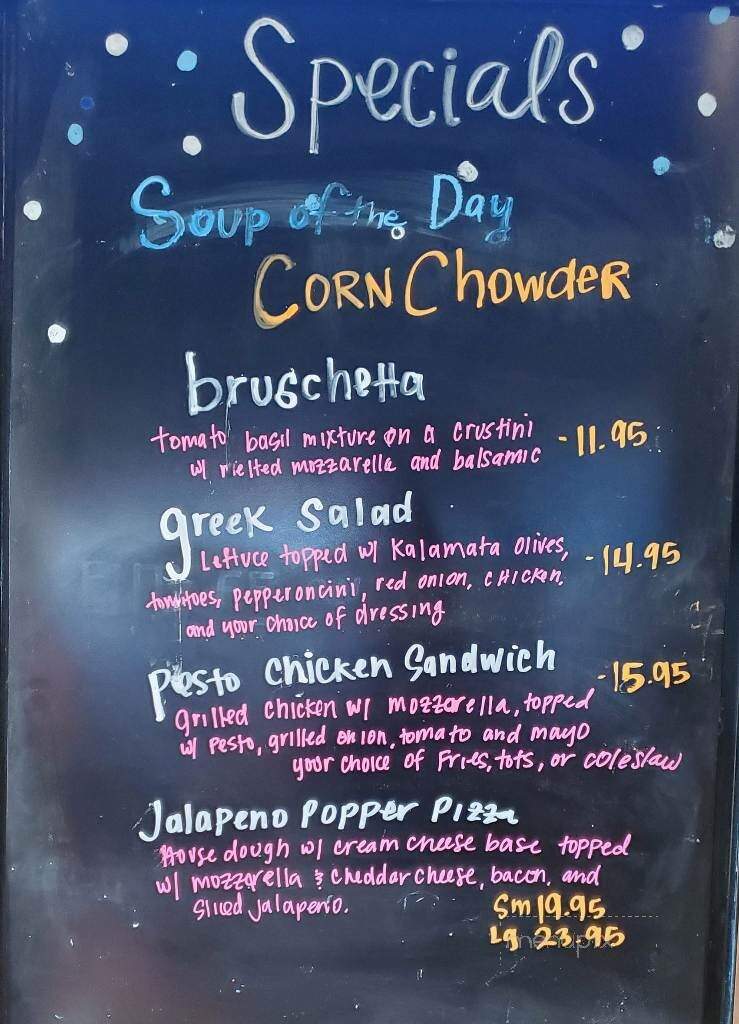 Specials
Soup of the Day
Corn Chowder
bruschetta
tomato basil mixture on a crustini
w/ melted mozzarella and balsamic
- 11.95
greek salad
Lettuce topped w/ Kalamata olives,
- 14.95
tomatoes, pepperoncini, red onion, chicken,
and your choice of dressing
Pesto Chicken Sandwich
- 15.95
grilled chicken w/ mozzarella, topped
w/ pesto, grilled onion, tomato and mayo
your choice of Fries, tots, or coleslaw
Jalapeno Popper Pizza
House dough w/ cream cheese base topped
w/ mozzarella & cheddar cheese, bacon, and
sliced jalapeno.
Sm 19.95
Lg 23.95
menupix